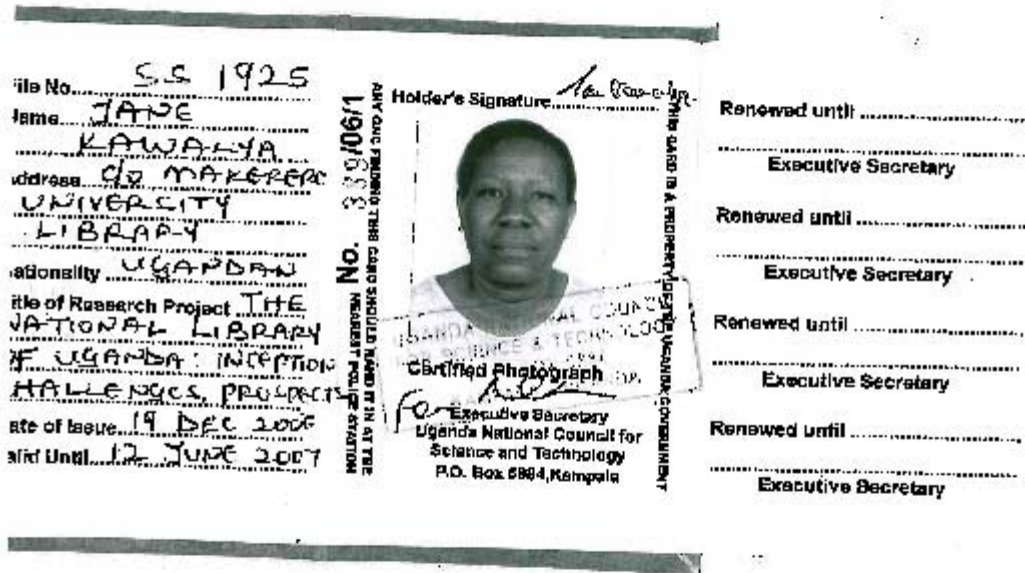 ile No. SS 1925
ame JANE
KAWALYA
ddress c/o MAKERERE
UNIVERSITY
LIBRARY
ationality UGANDAN
itle of Research Project THE
NATIONAL LIBRARY
OF UGANDA: INCEPTION
HALLENGES, PROSPECTS
ate of Issue 19 DEC 2006
alid Until 12 JUNE 2007
No. 339/06/1
ANY ONE FINDING THIS CARD SHOULD HAND IT IN AT THE
NEAREST POLICE STATION
Holder's Signature
UGANDA NATIONAL COUNCIL
FOR SCIENCE & TECHNOLOGY
Certified Photograph
For
Executive Secretary
Uganda National Council for
Science and Technology
P.O. Box 6884, Kampala
THIS CARD IS A PROPERTY OF THE UGANDA GOVERNMENT
Renewed until
Executive Secretary
Renewed until
Executive Secretary
Renewed until
Executive Secretary
Renewed until
Executive Secretary